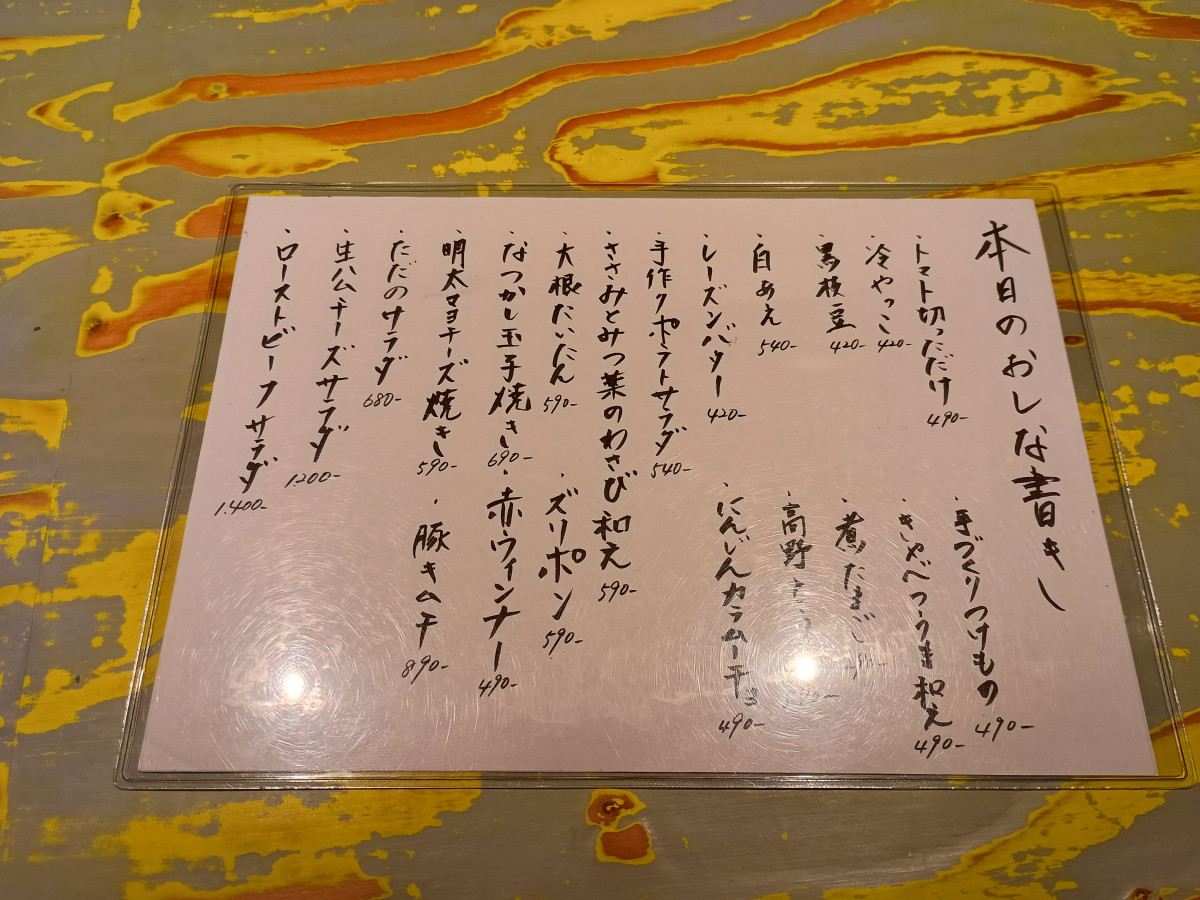 本日のおしな書き
・トマト切っただけ 490-
・冷やっこ 420-
・黒枝豆 420-
・白あえ 540-
・レーズンバター 420-
・手作りポテトサラダ 540-
・ささみとみつ葉のわさび和え 590-
・大根たいたん 590-
・なつかし玉子焼き 690-
・明太マヨチーズ焼き 590-
・ただのサラダ 680-
・生ハムチーズサラダ 1.200-
・ローストビーフサラダ 1.400-
・手づくりつけもの 490-
・きゃべつうま和え 490-
・煮たまご
・高野
・にんじんカラムーチョ 490-
・ズリポン 590-
・赤ウィンナー 490-
・豚キムチ 890-